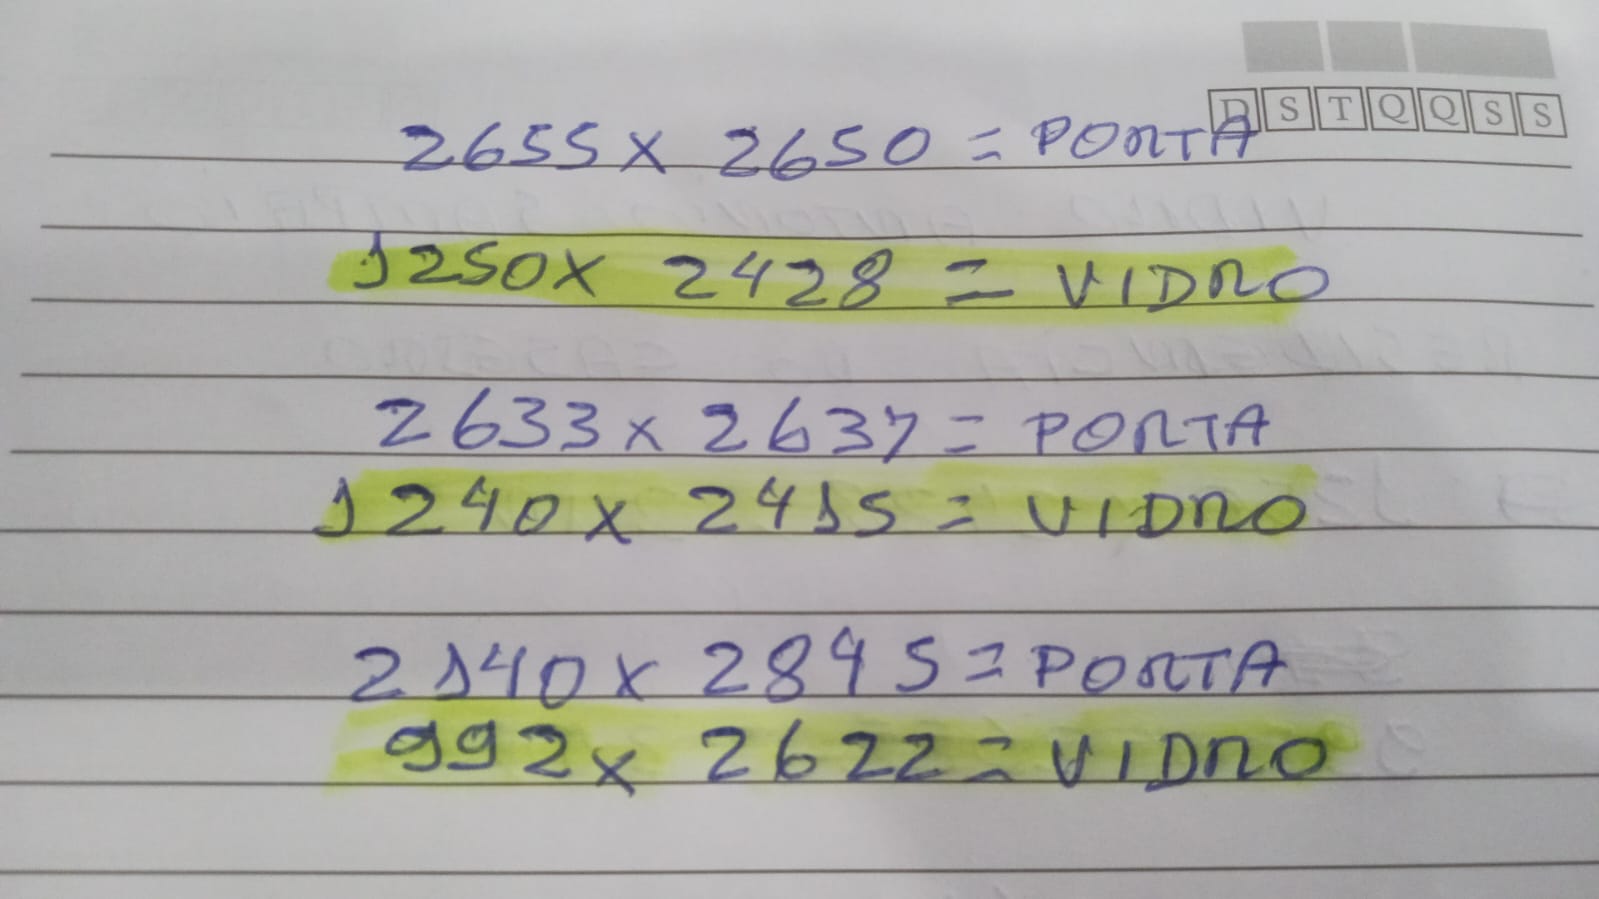 D S T Q Q S S
2655 x 2650 = PORTA
1250 x 2428 = VIDRO
2633 x 2637 = PORTA
1240 x 2415 = VIDRO
2140 x 2845 = PORTA
992 x 2622 = VIDRO